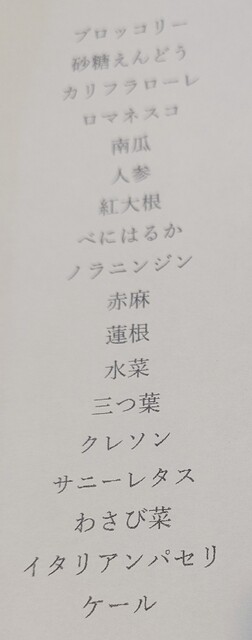 ブロッコリー
砂糖えんどう
カリフラローレ
ロマネスコ
南瓜
人参
紅大根
べにはるか
ノラニンジン
赤麻
蓮根
水菜
三つ葉
クレソン
サニーレタス
わさび菜
イタリアンパセリ
ケール